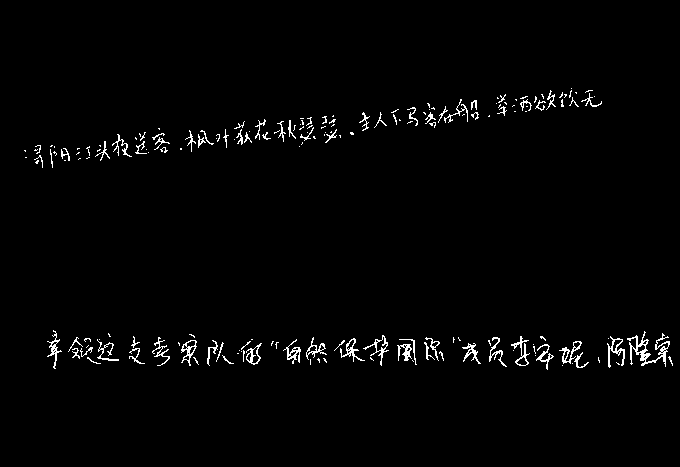 浔阳江头夜送客.枫叶荻花秋瑟瑟.主人下马客在船.举酒欲饮无
率领这支考察队的"自然保护国际"成员李安妮、阿隆索